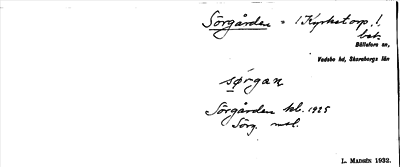 Sörgården = i Kyrketorp, l.
bek.
Bällefors sn,
Vadsbo hd, Skaraborgs län
sørgan
Sörgården hb. 1925
Sörg. mtl.
L. Madsén 1932.